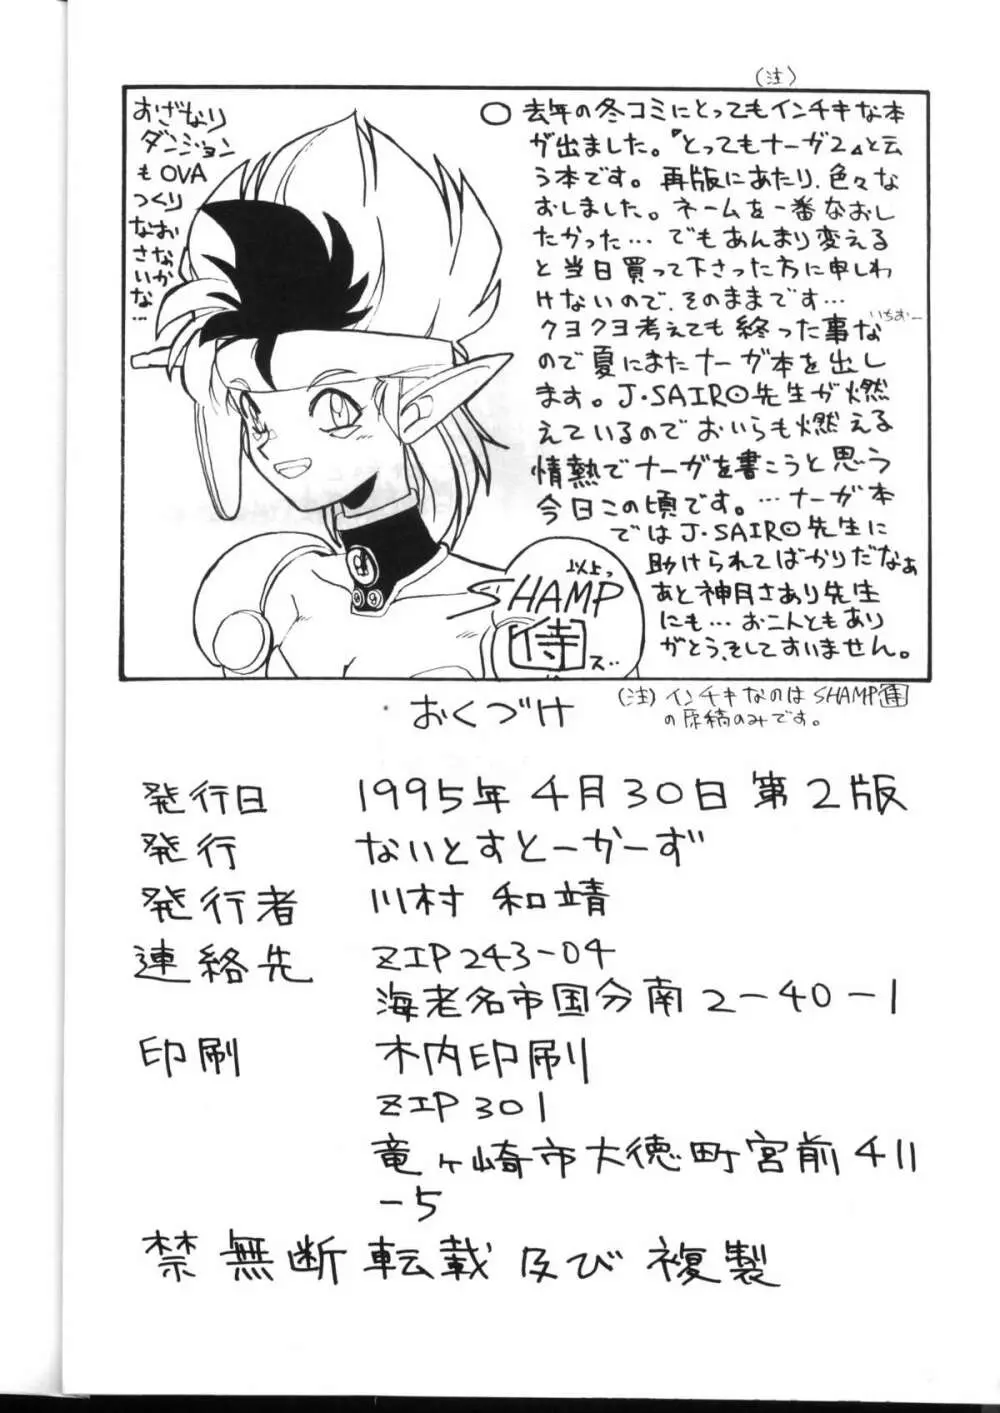 (注)
○去年の冬コミにとってもインチキな本
が出ました。『とってもナーガ2』と云
う本です。再版にあたり、色々な
おしました。ネームを一番なおし
たかった…でもあんまり変える
と当日買って下さった方に申しわ
けないので、そのままです…
いちおー
クヨクヨ考えても終った事な
ので夏にまたナーガ本を出し
ます。J・SAIRO先生が燃
えているのでおいらも燃える
情熱でナーガを書こうと思う
今日この頃です。…ナーガ本
ではJ・SAIRO先生に
助けられてばかりだなぁ
あと神月さあり先生
にも…お二人ともあり
がとう、そしてすいません。
おざなり
ダンジョン
もOVA
つくり
なおさないかな…
以上っ
SHAMP
侍
ズ
(注)インチキなのはSHAMP侍
の原稿のみです。
おくづけ
発行日 1995年4月30日第2版
発行 ないとすとーかーず
発行者 川村 和靖
連絡先 ZIP243-04
海老名市国分南2-40-1
印刷 木内印刷
ZIP301
竜ヶ崎市大徳町宮前411
-5
禁無断転載及び複製